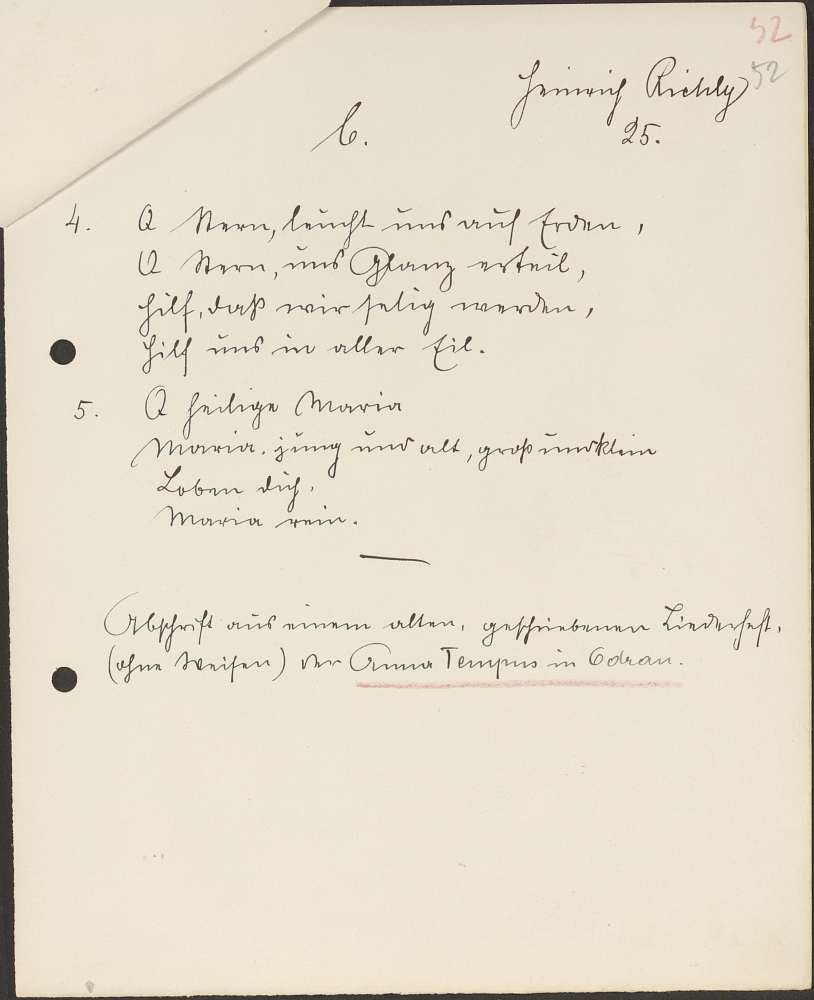 52
52
Heinrich Richly
25.
b.
4. O Stern, leucht uns auf Erden,
O Stern, uns Glanz erteil,
hilf, daß wir selig werden,
Hilf uns in aller Eil.
5. O heilige Maria
Maria. jung und alt, groß und klein
Loben dich,
Maria rein.
Abschrift aus einem alten, geschriebenen Liederheft,
(ohne Weisen) der Anna Tempus in Odrau.